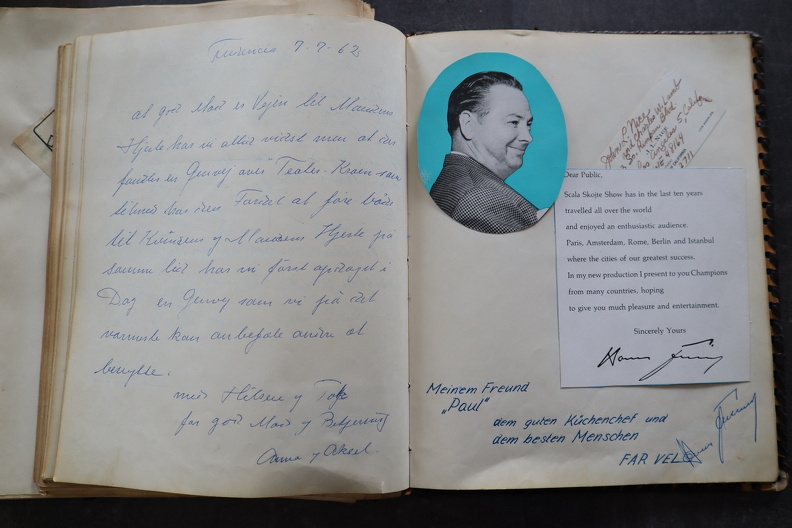 7-7-62
at god Mad er Vejen til Mandens
Hjerte har vi altid vidst men at der
findes en Genvej over Teater-Kroen som
tilmed har den Fordel at føre både
til Kvindens og Mandens Hjerte på
samme tid har vi først opdaget i
Dag en Genvej som vi på det
varmeste kan anbefale andre at
benytte.
med Hilsen og Tak
for god Mad og Betjening
Anna og Aksel.
John L.
Los Angeles
Dear Public,
Scala Skojte Show has in the last ten years
travelled all over the world
and enjoyed an enthusiastic audience.
Paris, Amsterdam, Rome, Berlin and Istanbul
where the cities of our greatest success.
In my new production I present to you Champions
from many countries, hoping
to give you much pleasure and entertainment.
Sincerely Yours
Meinem Freund
„Paul"
dem guten Küchenchef und
dem besten Menschen
FAR VEL